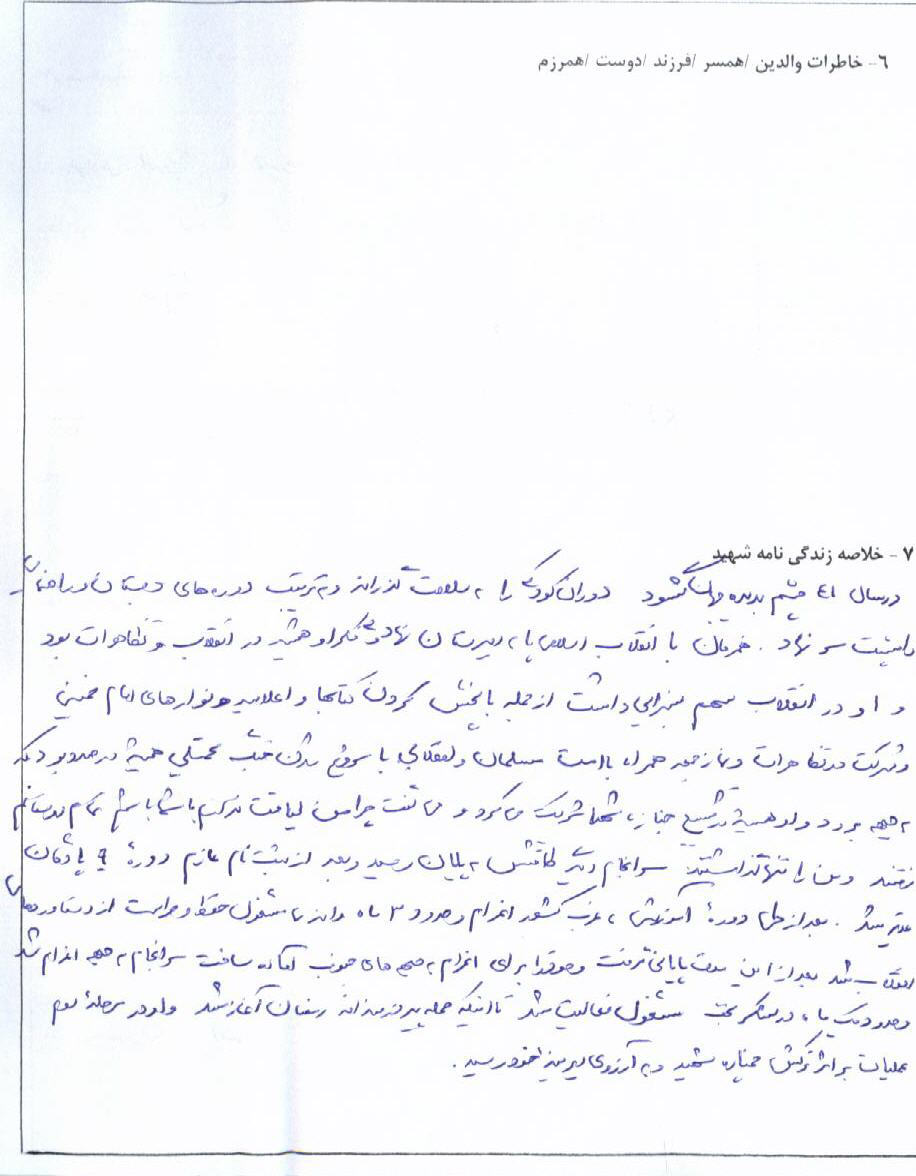 ٦- خاطرات والدین /همسر /فرزند /دوست /همرزم
٧ - خلاصه زندگی نامه شهید
درسال ٤١ چشم بدیده جهان گشود دوران کودکی را به سلامت گذراند و به ترتیب دوره های دبستان و راهنمایی
را پشت سر نهاد . همزمان با انقلاب اسلامی پا به دبیرستان نهاد و فکر او همیشه در انقلاب و تظاهرات بود
و او در انقلاب سهم بسزایی داشت از جمله با پخش کردن کتابها و اعلامیه و نوارهای امام خمینی
وشرکت در تظاهرات و نماز جمعه همراه با امت مسلمان و انقلابی با شروع شدن جنگ تحمیلی همیشه در صدد بود که
به جبهه برود و او همیشه در تشییع جنازه شهدا شرکت می کرد و می گفت چرا من لیاقت ندارم با شما باشم تمام دوستانم
رفتند و من را تنها گذاشتند سرانجام دیگر طاقتش به پایان رسید و بعد از ثبت نام عازم دورهٔ پادگان
شد . بعد از طی دورهٔ آموزش به غرب کشور اعزام و حدود ٣ ماه در آنجا مشغول حفظ و حراست از دستاوردهای
انقلاب شد بعد از این مدت پایانی گرفت و خود را برای اعزام به جبهه های جنوب آماده ساخت سرانجام به جبهه اعزام شد
و حدود یک ماه در مشغول فعالیت شد تا اینکه حمله پیروزمندانه رمضان آغاز شد و او در مرحلهٔ سوم
عملیات بر اثر ترکش خمپاره شهید و به آرزوی دیرینه خود رسید .